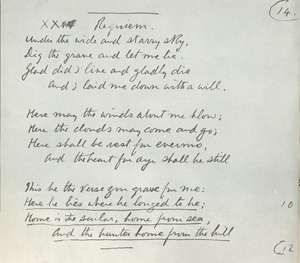 14.
XXX Requiem.
Under the wide and starry sky,
Dig the grave and let me lie.
Glad did I live and gladly die
And I laid me down with a will.
Here may the winds about me blow;
Here the clouds may come and go;
Here shall be rest for evermo,
And the heart for aye shall be still
This be the verse you grave for me:
Here he lies where he longed to be;
10
Home is the sailor, home from sea,
And the hunter home from the hill
12